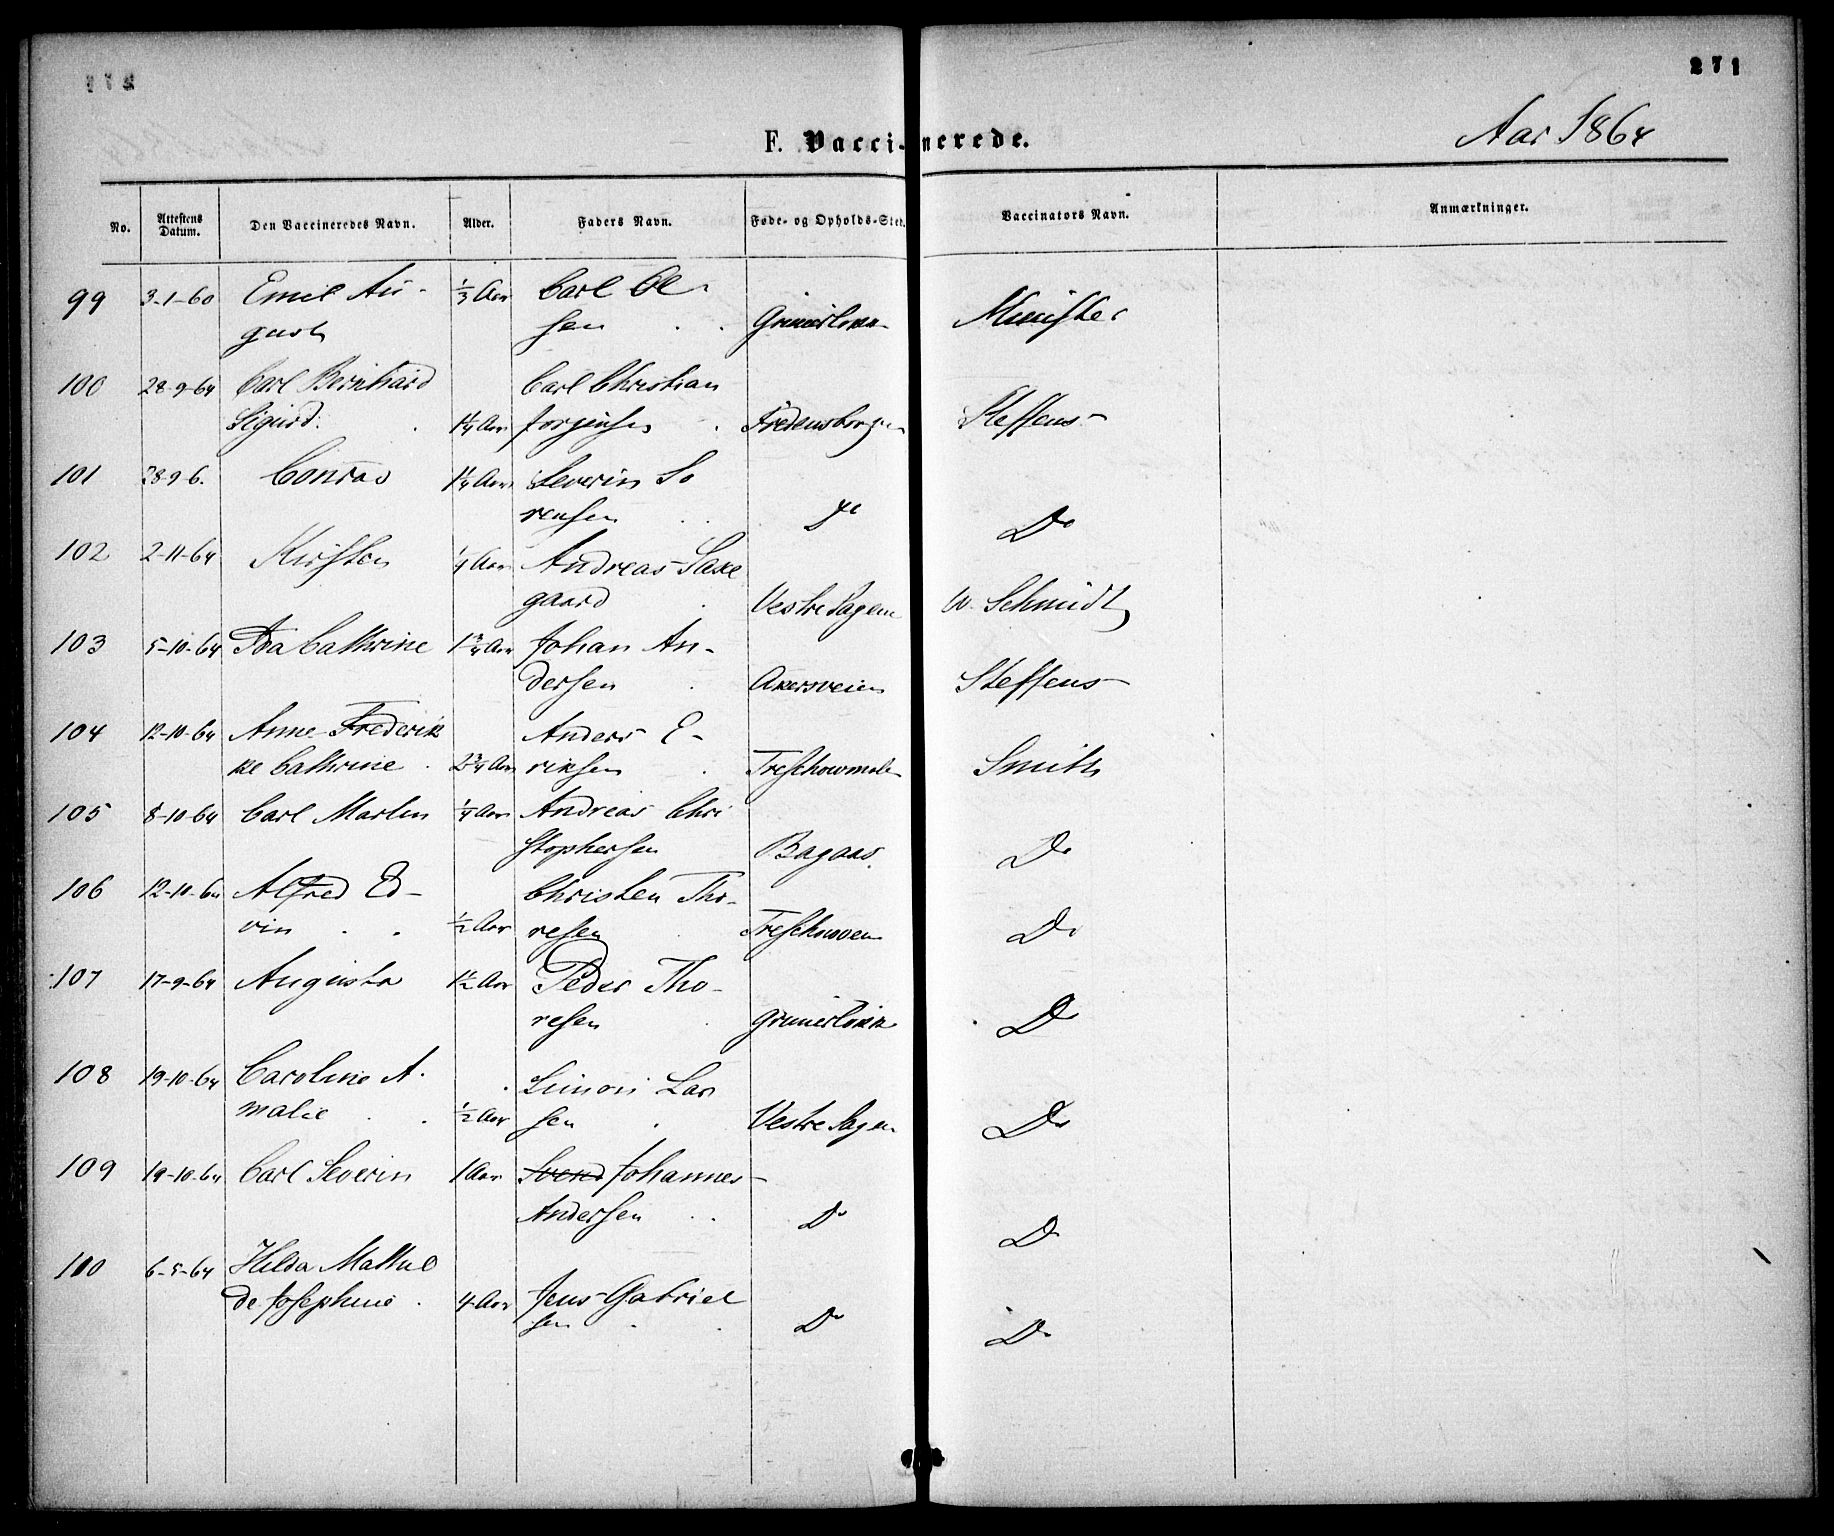 271
F. Vaccinerede.
Aar 1864
No. Attestens Datum. Den Vaccineredes Navn. Alder. Faders Navn. Føde- og Opholds-Sted. Vaccinators Navn. Anmærkninger.
99 3-1-60 Emil Au- 1/3 Aar Carl Ol-
gust sen Grünerløkn Münster
100 28-9-64 Carl Bernhard Carl Christian
Sigurd. 1 1/4 Aar Jorgensen Fredensborgn Steffens
101 28-9-6. Conrad 1 1/4 Aar Severin So
rensen Do Do
102 2-11-64 Kirsten 1/4 Aar Andreas Saxe
gaard Vestre Sagene W. Schmidt
103 5-10-64 Ida Cathrine 1 3/4 Aar Johan An-
dersen Akersveien Steffens
104 12-10-64 Anne Frederik Anders E-
ke Cathrine 2 3/4 Aar riksen Treschowmole Smith
105 8-10-64 Carl Martin 1/4 Aar Andreas Chri
stophersen Bagaas Do
106 12-10-64 Alfred Ed- Christen Tho-
vin 1/2 Aar resen Treschowven Do
107 17-9-64 Augusta 1 1/2 Aar Peder Tho-
resen Grunerløkk Do
108 19-10-64 Caroline A- Simon Lar
malie 1/2 Aar sen Vestre Sagen Do
109 19-10-64 Carl Severin 1 Aar Svend Johannes
Andersen Do Do
100 6-5-64 Hilda Mathil
de Josephine 4 Aar Jens Gabriel
sen Do Do